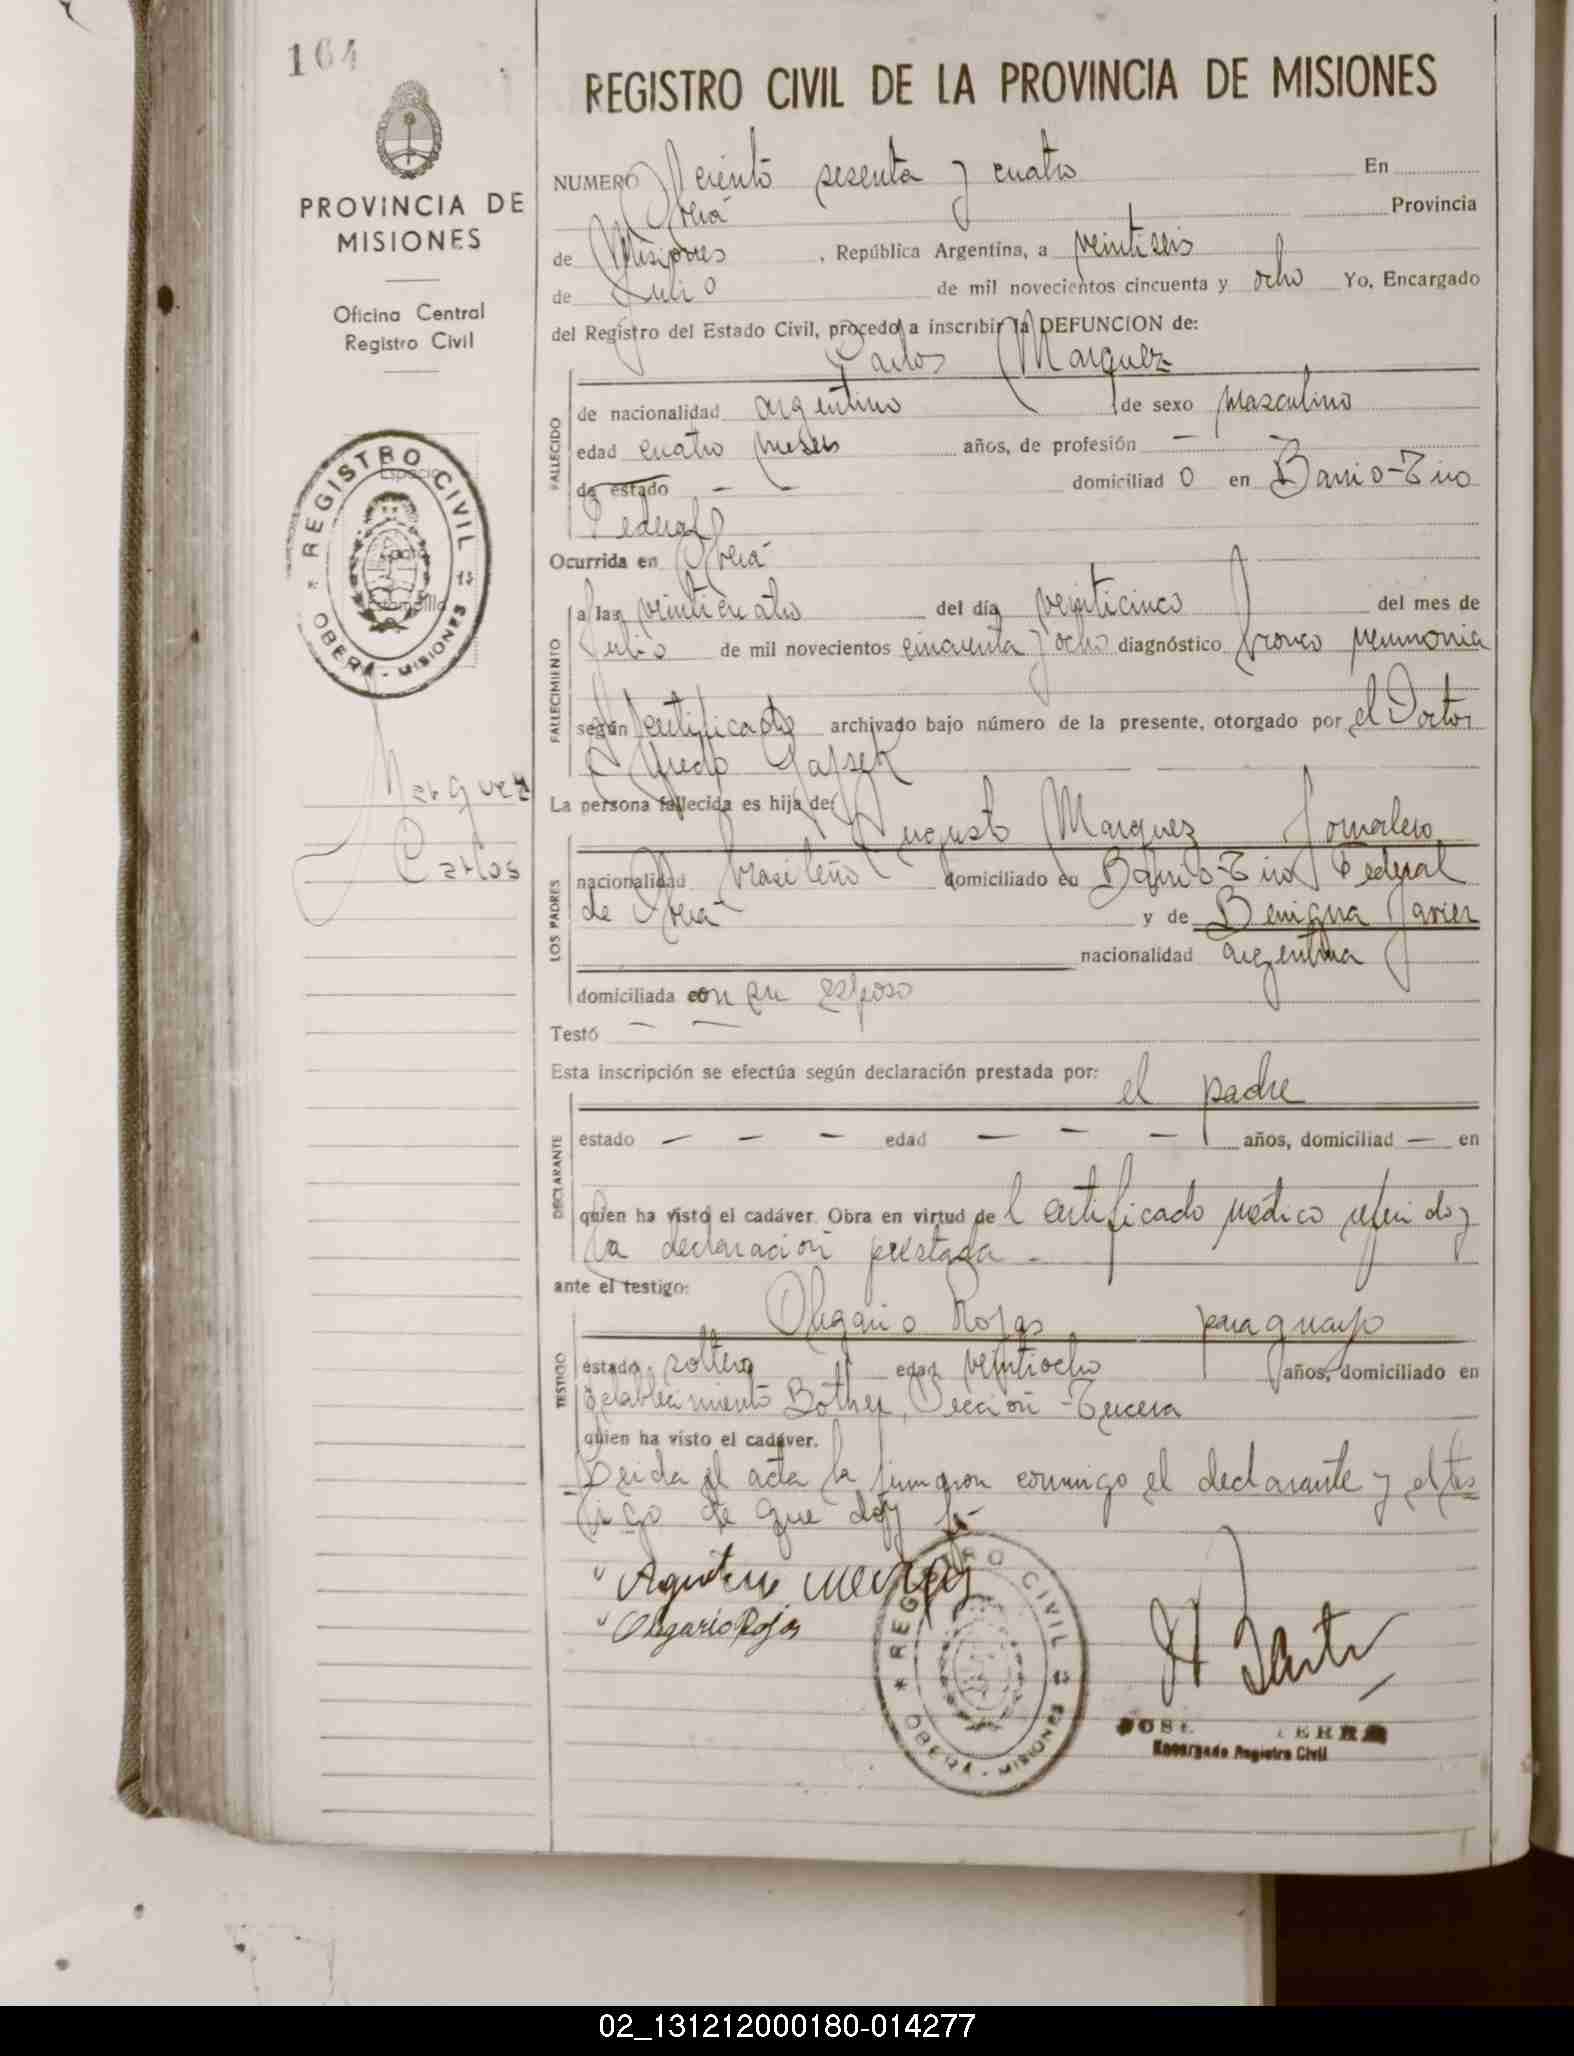 164
PROVINCIA DE
MISIONES
Oficina Central
Registro Civil
REGISTRO CIVIL
OBERÁ - MISIONES
Marquez
Carlos
REGISTRO CIVIL DE LA PROVINCIA DE MISIONES
NUMERO ciento sesenta y cuatro En
Oberá Provincia
de Misiones, República Argentina, a veintiseis
de Julio de mil novecientos cincuenta y ocho Yo, Encargado
del Registro del Estado Civil, procedo a inscribir la DEFUNCION de:
Carlos Marquez
FALLECIDO
de nacionalidad argentino de sexo masculino
edad cuatro meses años, de profesión — —
de estado — — domiciliad o en Barrio-Tiro
Federal
Ocurrida en Oberá
FALLECIMIENTO
a las veinticuatro del día veinticinco del mes de
Julio de mil novecientos cincuenta y ocho diagnóstico bronco neumonia
según certificado archivado bajo número de la presente, otorgado por el Doctor
Alfredo
La persona fallecida es hija de:
LOS PADRES
Augusto Marquez Jornalero
nacionalidad brasileño domiciliado en Barrio-Tiro Federal
de Oberá y de Benigna Javier
nacionalidad argentina
domiciliada con su esposo
Testó — —
Esta inscripción se efectúa según declaración prestada por: el padre
DECLARANTE
estado — — — edad — — — años, domiciliad — en
quien ha visto el cadáver. Obra en virtud del certificado médico referido y
la declaración prestada -
ante el testigo:
TESTIGO
Olegario Rojas paraguayo
estado soltero edad veintiocho años, domiciliado en
establecimiento Bother, Sección -Tercera
quien ha visto el cadáver.
Leida el acta la firmaron conmigo el declarante y el tes
tigo de que doy fé-
" Olegario Rojas
REGISTRO CIVIL
OBERÁ - MISIONES
JOSE
Encargado Registro Civil
02_131212000180-014277